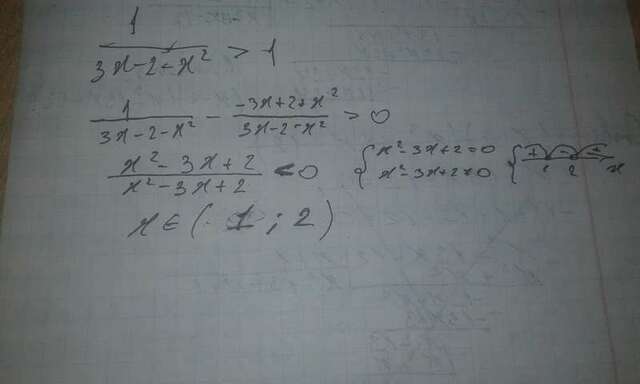 1/(3x-2-x²) > 1
1/(3x-2-x²) - (-3x+2+x²)/(3x-2-x²) > 0
(x²-3x+2)/(x²-3x+2) < 0 { x²-3x+2=0 { + - +
x²-3x+2≠0 1 2 x
x ∈ (1; 2)